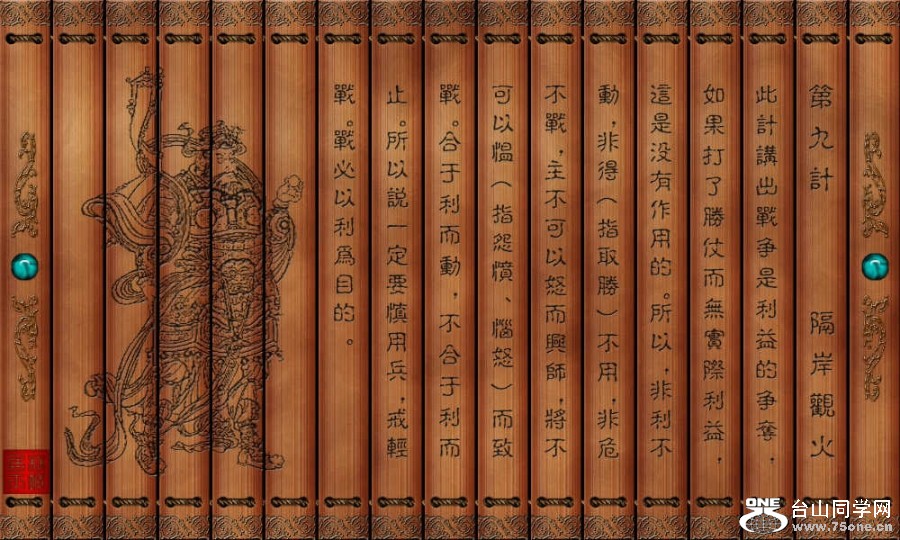 第九計 隔岸觀火
此計講出戰争是利益的争奪，
如果打了勝仗而無實際利益，
這是没有作用的。所以，非利不
動，非得（指取勝）不用，非危
不戰，主不可以怒而興師，將不
可以愠（指怨憤、惱怒）而致
戰。合于利而動，不合于利而
止。所以説一定要慎用兵，戒輕
戰。戰必以利爲目的。
ONE
台山同学网
www.75one.cn